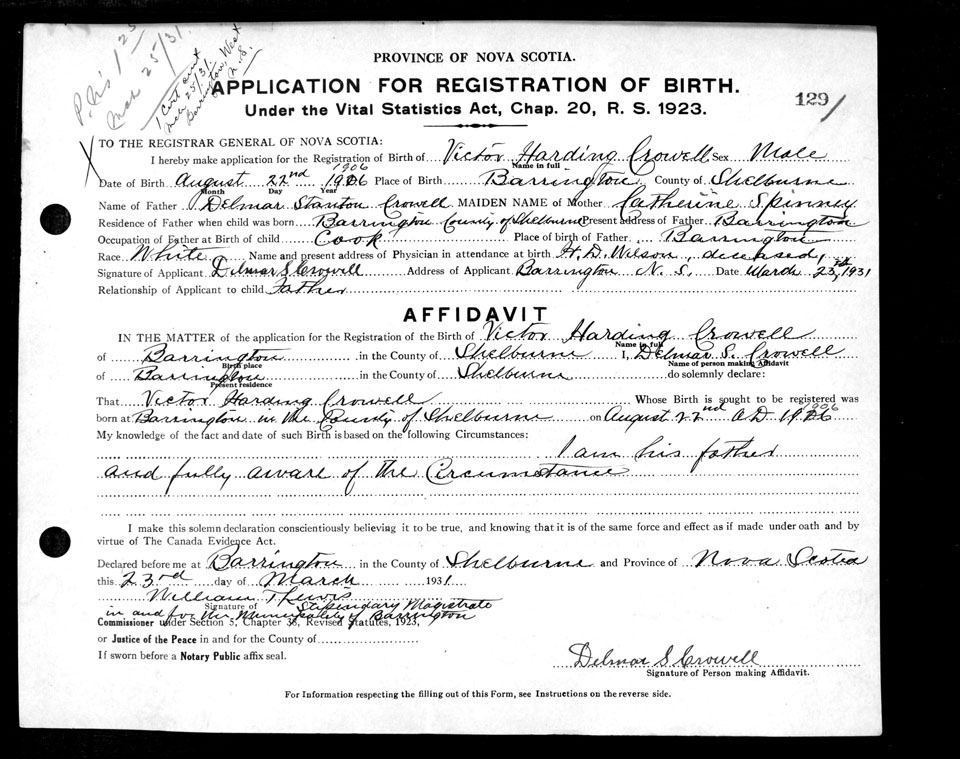 P.N's 1 25
Mar 25/31
1 Cert sent
Mar 25/31.
Barrington, West
N.S.
PROVINCE OF NOVA SCOTIA.
APPLICATION FOR REGISTRATION OF BIRTH.
Under the Vital Statistics Act, Chap. 20, R. S. 1923.
129
TO THE REGISTRAR GENERAL OF NOVA SCOTIA:
I hereby make application for the Registration of Birth of Victor Harding Crowell Sex Male
Name in full
1906
Date of Birth August 22nd 1906 Place of Birth Barrington County of Shelburne
Month Day Year
Name of Father Delmar Stanton Crowell MAIDEN NAME of Mother Catherine Spinney
Residence of Father when child was born Barrington County of Shelburne Present address of Father Barrington
Occupation of Father at Birth of child Cook Place of birth of Father Barrington
Race White Name and present address of Physician in attendance at birth H. D. Wilson, deceased,
Signature of Applicant Delmar S Crowell Address of Applicant Barrington N. S. Date March 23rd, 1931
Relationship of Applicant to child Father
AFFIDAVIT
IN THE MATTER of the application for the Registration of the Birth of Victor Harding Crowell
Name in full
of Barrington in the County of Shelburne I, Delmar S. Crowell
Birth place Name of person making Affidavit
of Barrington in the County of Shelburne do solemnly declare:
Present residence
That Victor Harding Crowell Whose Birth is sought to be registered was
1906
born at Barrington in the County of Shelburne on August 22nd AD 1906
My knowledge of the fact and date of such Birth is based on the following Circumstances:
I am his father
and fully aware of the Circumstance
I make this solemn declaration conscientiously believing it to be true, and knowing that it is of the same force and effect as if made under oath and by
virtue of The Canada Evidence Act.
Declared before me at Barrington in the County of Shelburne and Province of Nova Scotia
this 23rd day of March 1931
William T Lewis
Signature of Stipendary Magistrate
in and for the Municipality of Barrington
Commissioner under Section 5, Chapter 38, Revised Statutes, 1923,
or Justice of the Peace in and for the County of
If sworn before a Notary Public affix seal.
Delmar S Crowell
Signature of Person making Affidavit.
For Information respecting the filling out of this Form, see Instructions on the reverse side.